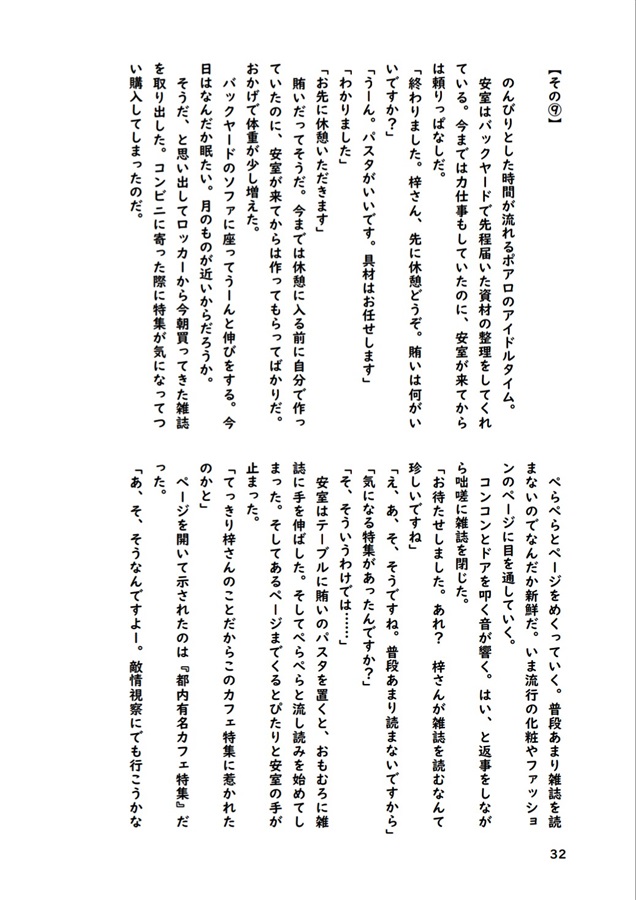 【その⑨】
　のんびりとした時間が流れるポアロのアイドルタイム。
　安室はバックヤードで先程届いた資材の整理をしてくれ
ている。今までは力仕事もしていたのに、安室が来てから
は頼りっぱなしだ。
「終わりました。梓さん、先に休憩どうぞ。賄いは何がい
いですか？」
「うーん。パスタがいいです。具材はお任せします」
「わかりました」
「お先に休憩いただきます」
　賄いだってそうだ。今までは休憩に入る前に自分で作っ
ていたのに、安室が来てからは作ってもらってばかりだ。
おかげで体重が少し増えた。
　バックヤードのソファに座ってうーんと伸びをする。今
日はなんだか眠たい。月のものが近いからだろうか。
　そうだ、と思い出してロッカーから今朝買ってきた雑誌
を取り出した。コンビニに寄った際に特集が気になってつ
い購入してしまったのだ。
　ぺらぺらとページをめくっていく。普段あまり雑誌を読
まないのでなんだか新鮮だ。いま流行の化粧やファッショ
ンのページに目を通していく。
　コンコンとドアを叩く音が響く。はい、と返事をしなが
ら咄嗟に雑誌を閉じた。
「お待たせしました。あれ？　梓さんが雑誌を読むなんて
珍しいですね」
「え、あ、そ、そうですね。普段あまり読まないですから」
「気になる特集があったんですか？」
「そ、そういうわけでは……」
　安室はテーブルに賄いのパスタを置くと、おもむろに雑
誌に手を伸ばした。そしてぺらぺらと流し読みを始めてし
まった。そしてあるページまでくるとぴたりと安室の手が
止まった。
「てっきり梓さんのことだからこのカフェ特集に惹かれた
のかと」
　ページを開いて示されたのは『都内有名カフェ特集』だ
った。
「あ、そ、そうなんですよー。敵情視察にでも行こうかな
32